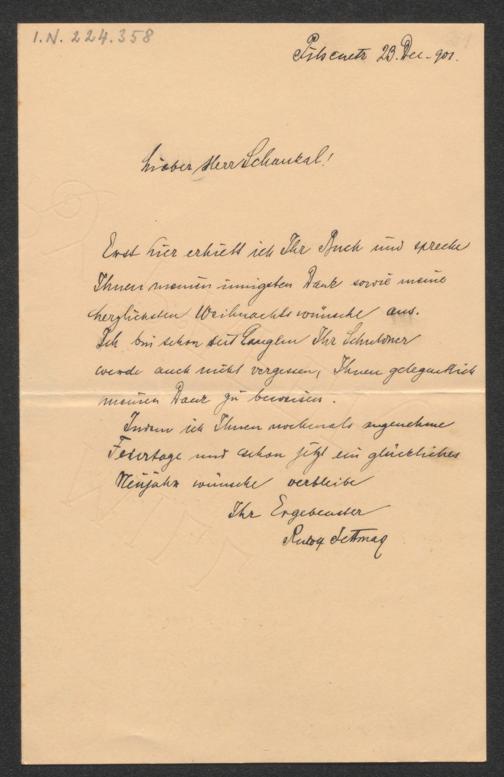 I.N. 224.358
Pilsenetz 23. Dec. 901.
Lieber Herr Schaukal!
Erst hier erhielt ich Ihr Buch und spreche
Ihnen meinen innigsten Dank sowie meine
herzlichsten Weihnachtswünsche aus.
Ich bin schon seit Langem Ihr Schuldner
werde auch nicht vergessen, Ihnen gelegentlich
meinen Dank zu beweisen.
Indem ich Ihnen nochmals angenehme
Feiertage und schon jetzt ein glückliches
Neujahr wünsche verbleibe
Ihr Ergebenster
Rudolf Jettmar